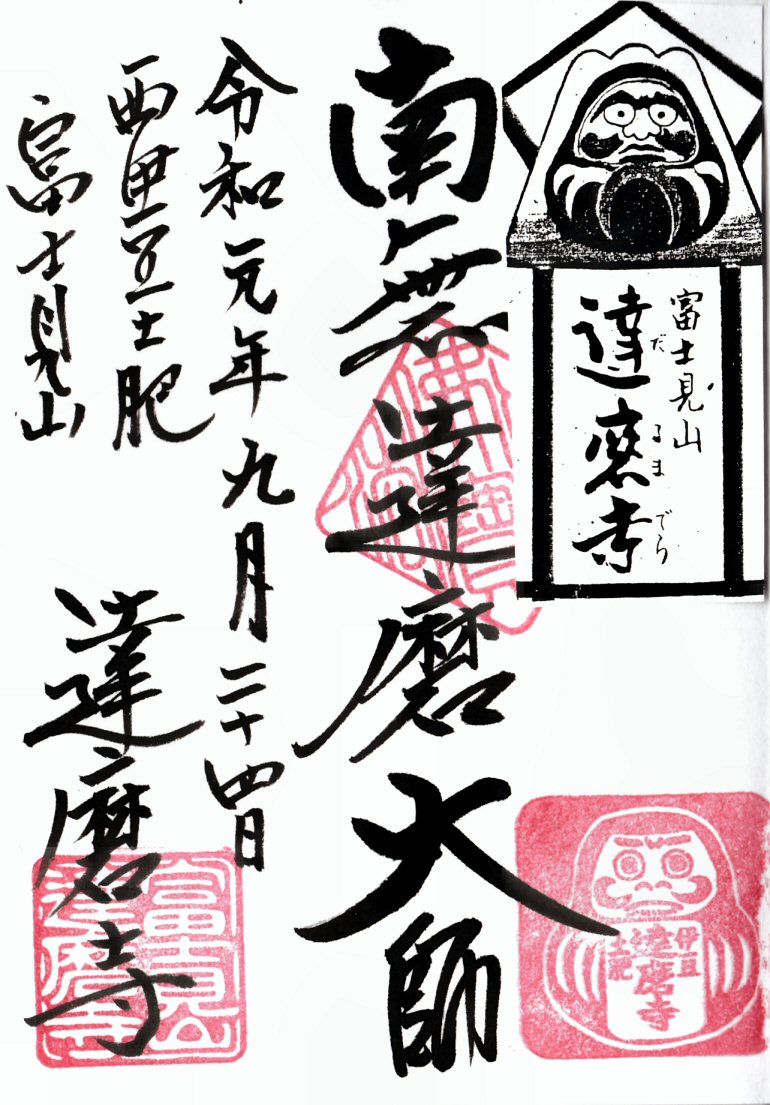 富士見山
達磨寺
だるまでら
南無達磨大師
令和元年九月二十四日
西伊豆土肥
富士見山
達磨寺
伊豆
達磨寺
土肥
富士見山
達磨寺